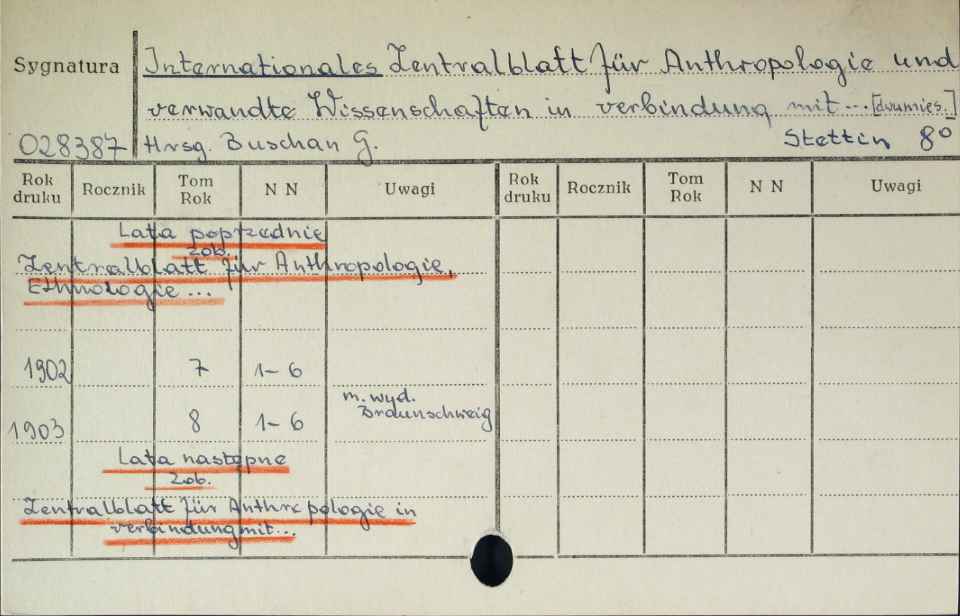 Sygnatura
Internationales Zentralblatt für Anthropologie und
verwandte Wissenschaften in verbindung mit...[dwumies.]
028387 Hrsg. Buschan G. Stettin 8°
Rok druku Rocznik Tom Rok N N Uwagi Rok druku Rocznik Tom Rok N N Uwagi
Lata poprzednie
zob.
Zentralblatt für Anthropologie,
Ethnologie...
1902 7 1-6
m. wyd.
Braunschweig
1903 8 1-6
Lata następne
zob.
Zentralblatt für Anthropologie in
verbindung mit...